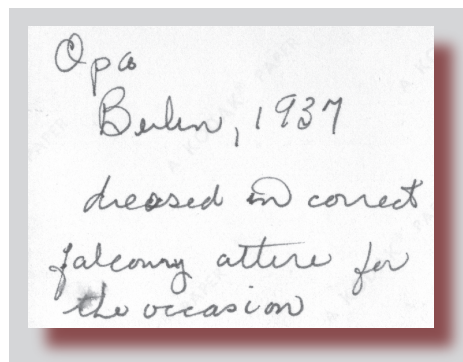 Opa
Berlin, 1937
dressed in correct
falconry attire for
the occasion